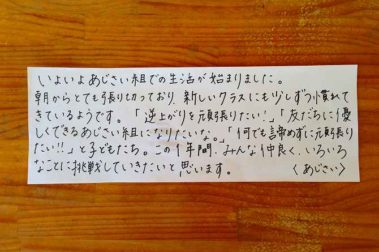 いよいよあじさい組での生活が始まりました。
朝からとても張り切っており、新しいクラスにも少しずつ慣れて
きているようです。「逆上がりを頑張りたい！」「友だちに優
しくできるあじさい組になりたいな。」「何でも諦めずに頑張り
たい!!」と子どもたち。この1年間、みんな仲良く、いろいろ
なことに挑戦していきたいと思います。 〈あじさい〉